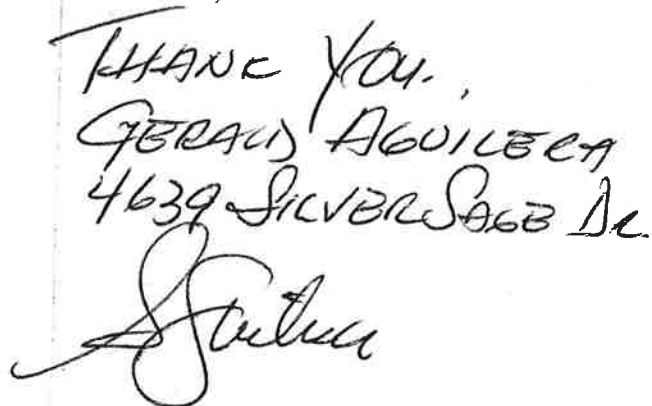 THANK YOU.,
GERALD AGUILERA
4639 SILVER SAGE DR.